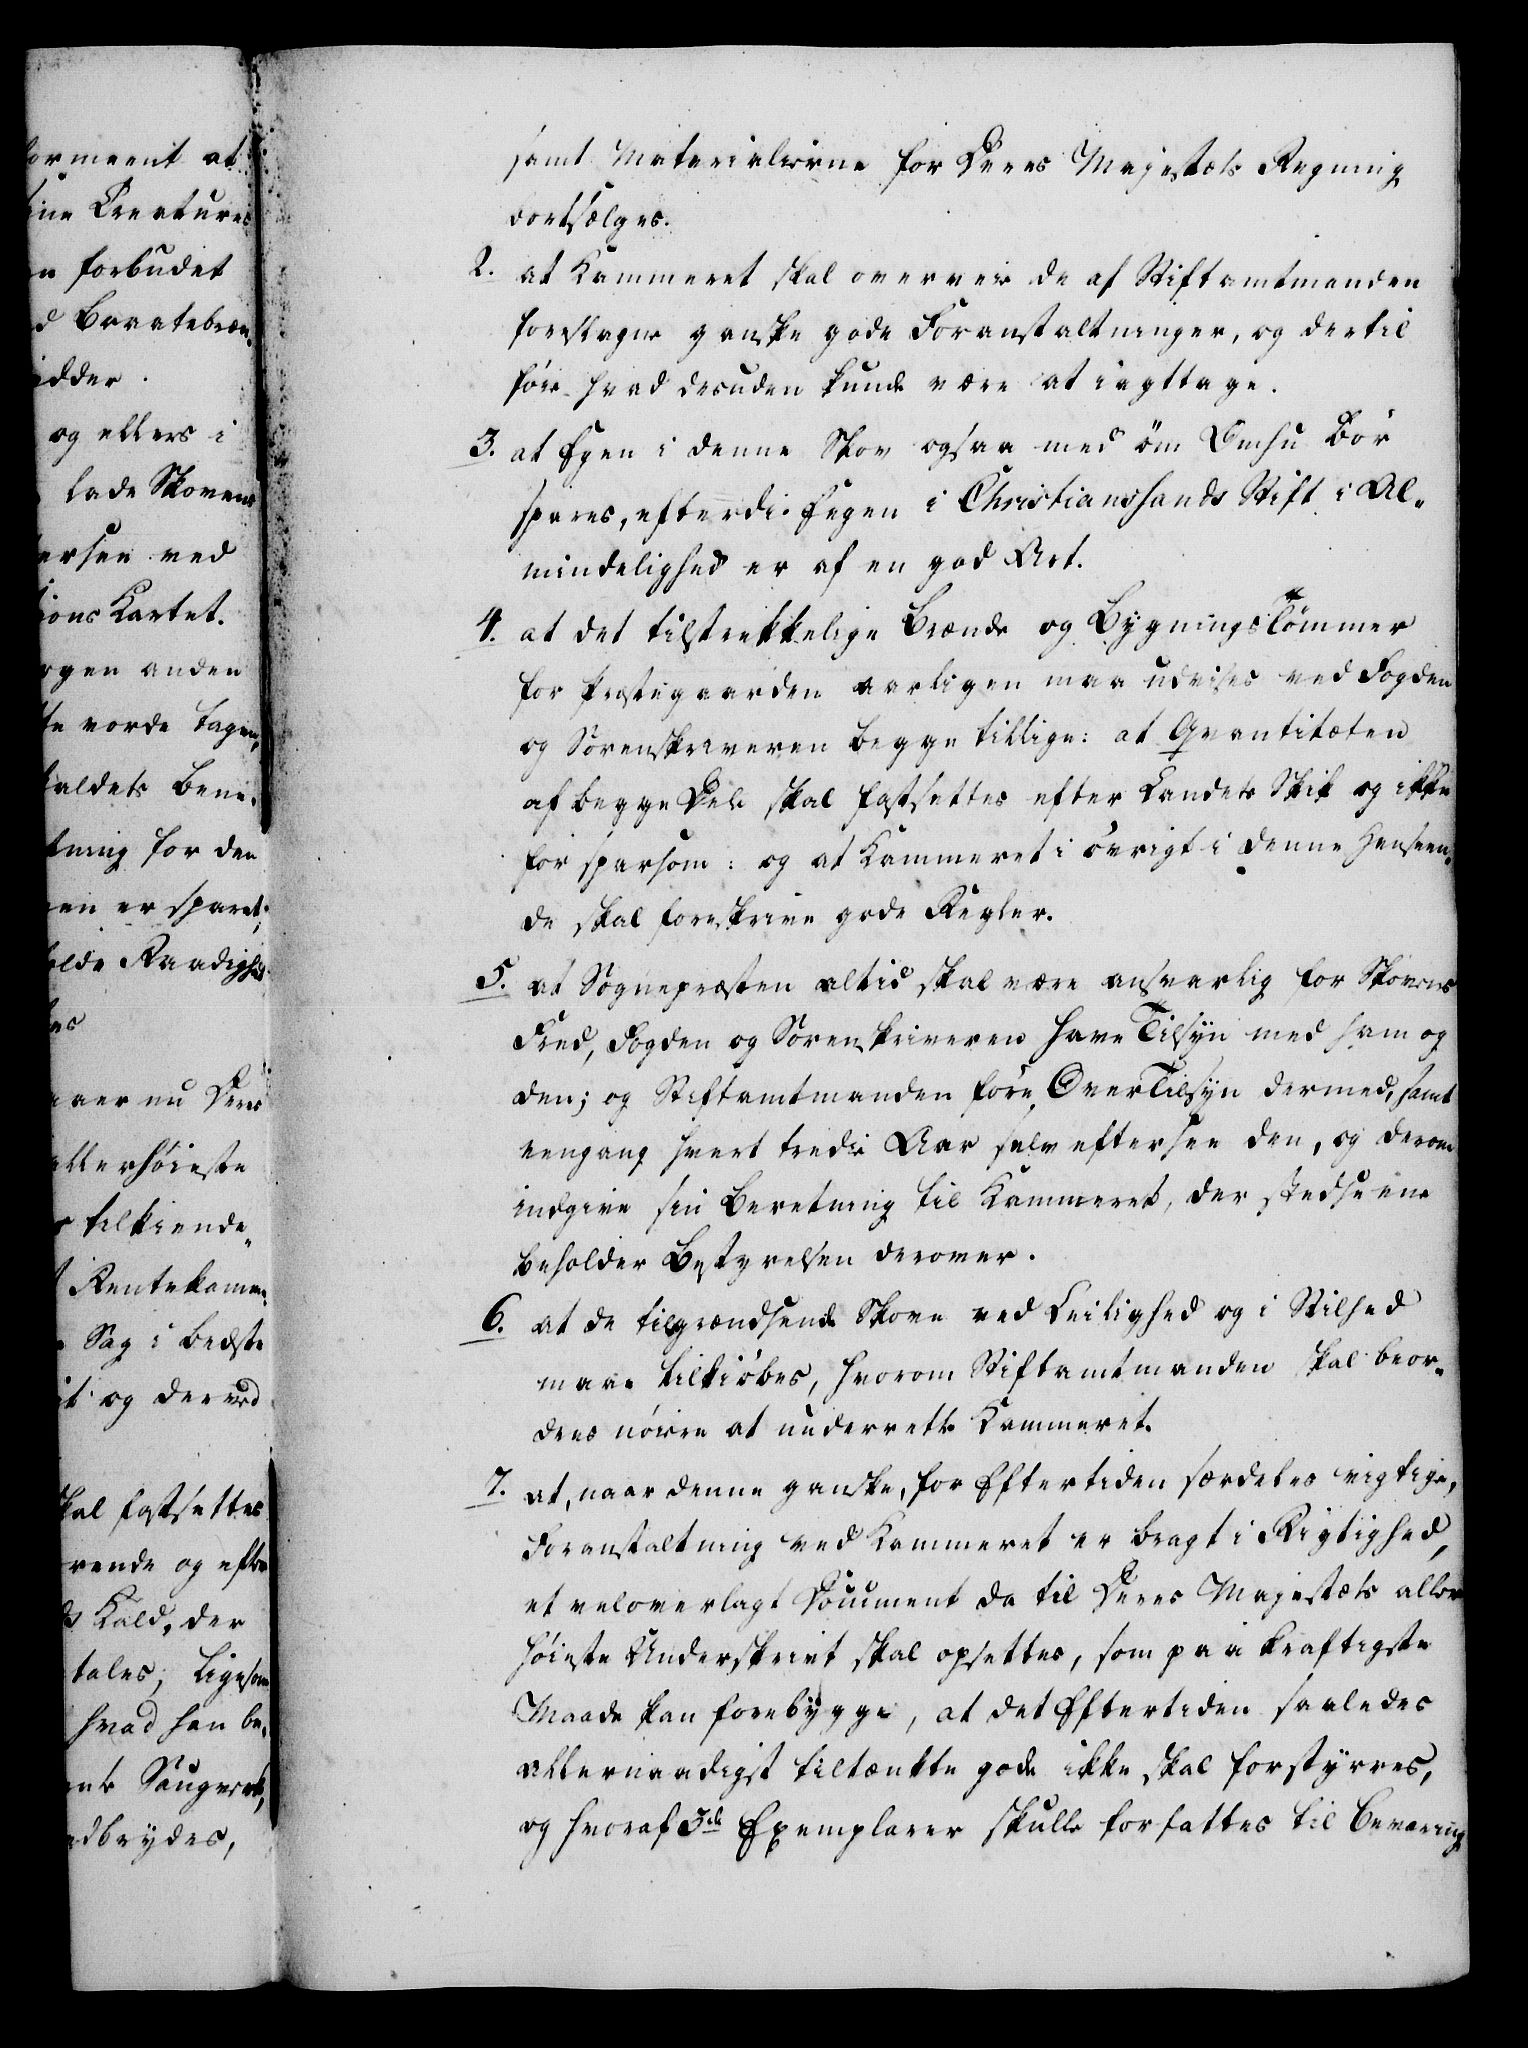 formeent at
sine Creaturer
en forbudet
d Braatebræn-
idder.
og ellers i
lade Skovene
ersen ved
ions Kartet.
ogen anden
te vorde tagen,
faldets bene-
tning for den
en er sparet;
olde Raadighed
es
aaer nu Deres
allerhöieste
tilkiende-
Rentekamme-
Sag i bedste
it og derved
skal fastsettes
rende og efter
ds Kald, der
tales, ligesom
hvad han be-
ets Saugverk,
edbrydes,
samt Materialierne for Deres Majestæts Regning
bortsælges.
2. at Kammeret skal overveie de af Stiftamtmanden
foreslagne ganske gode Foranstaltninger, og dertil
föie hvad desuden kunde være at iagttage.
3. at Egen i denne Skov ogsaa med öm Omhu bör
spares, efterdi Eegen i Christianshands Stift i Al-
mindelighed er af en god Art.
4. at det tilstrekkelige Brænde og Bygningstömmer
for Præstegaarden aarligen maa udvises ved Fogden
og Sorenskriveren begge tillige: at Qvantitæten
af begge Dele skal fastsettes efter Landets Skik og ikke
for sparsom: og at Kammeret i övrigt i denne Henseen-
de skal foreskrive gode Regler.
5. at Sognepræsten altid skal være ansvarlig for Skovens
Fred, Fogden og Sorenskriveren have Tilsyn med ham og
den; og Stiftamtmanden före OverTilsyn dermed, samt
eengang hvert tredie Aar selv eftersee den, og derom
indgive sin Beretning til Kammeret, der stedse ene
beholder Bestyrelsen derover.
6. at de tilgrændsende Skove ved Leilighed og i Stilhed
maae tilkiöbes, hvorom Stiftamtmanden skal beor-
dres nöiere at underrette Kammeret.
7. at, naar denne ganske, for Eftertiden særdeles vigtige,
Foranstaltning ved Kammeret er bragt i Rigtighed,
et veloverlagt Document da til Deres Majestæts aller-
höieste Underskrivt skal opsettes, som paa kraftigste
Maade kan forebygge, at det Eftertiden saaledes
allernaadigst tiltænkte gode ikke skal forstyrres,
og hvoraf 3de Exemplarer skulle forfattes til Bevaring